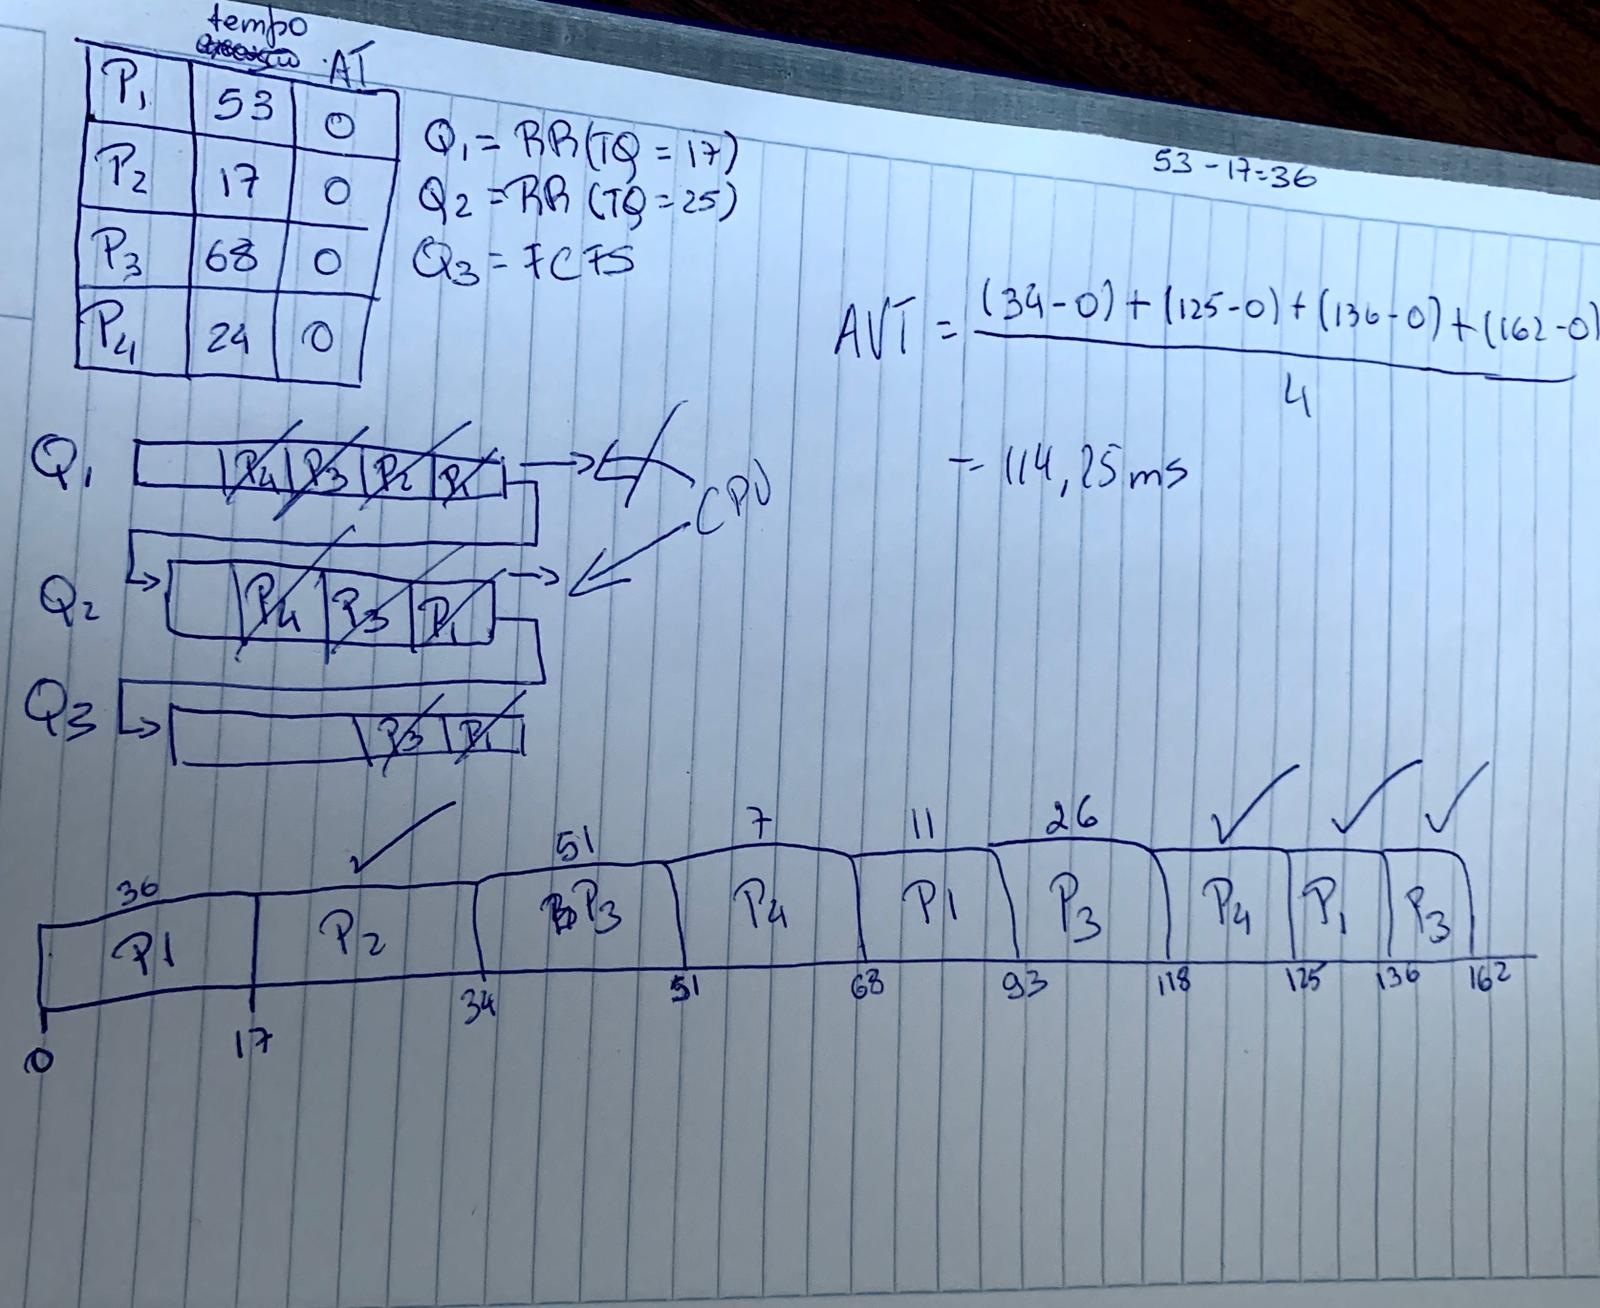 tempo
AT
P1 53 0
P2 17 0
P3 68 0
P4 24 0
Q1 = RR(TQ = 17)
Q2 = RR (TQ = 25)
Q3 = FCFS
53 - 17 = 36
AVT = (34 - 0) + (125 - 0) + (136 - 0) + (162 - 0)
4
= 114,25 ms
Q1 P4 P3 P2 P1
CPU
Q2 P4 P3 P1
Q3 P3 P1
36 51 7 11 26
P1 P2 P3 P4 P1 P3 P4 P1 P3
0 17 34 51 68 93 118 125 136 162